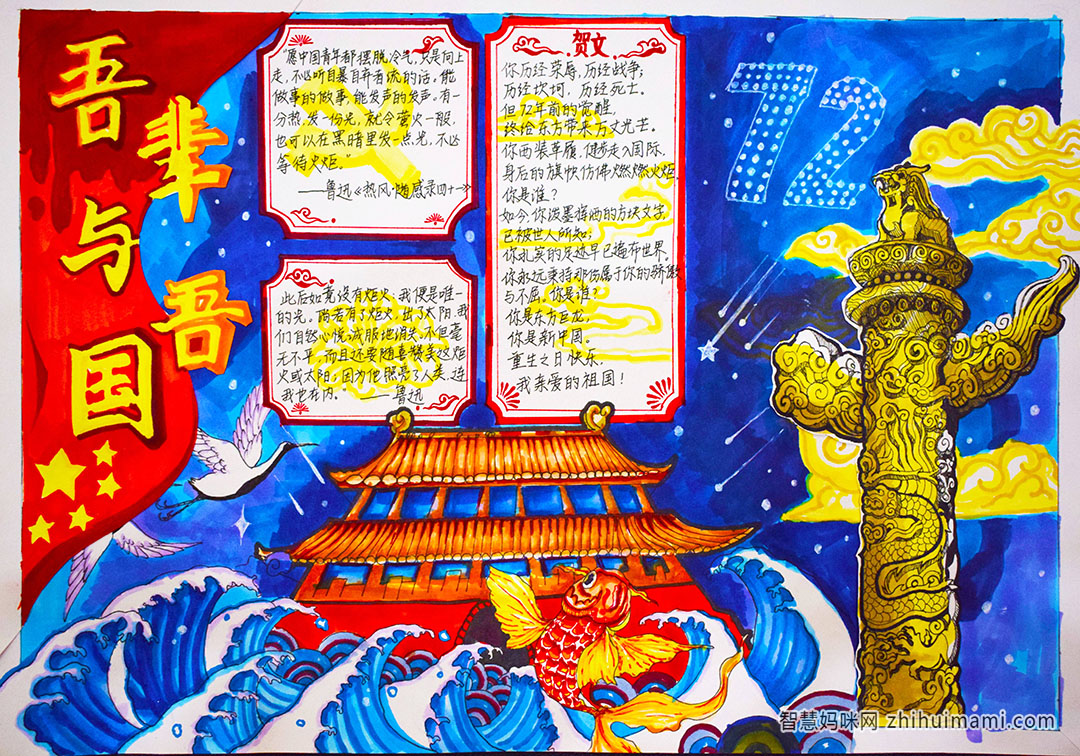 吾辈与吾国
"愿中国青年都摆脱冷气,只是向上
走,不必听自暴自弃者流的话,能
做事的做事,能发声的发声。有一
分热,发一份光,就令萤火一般,
也可以在黑暗里发一点光,不必
等待火炬。"
——鲁迅《热风·随感录四十一》
此后如竟没有炬火,我便是唯一
的光。倘若有了炬火,出了太阳,我
们自然心悦诚服地消失,不但毫
无不平,而且还要随喜赞美这炬
火或太阳;因为他照亮了人类,连
我也在内。"——鲁迅
贺文
你历经荣辱,历经战争;
历经坎坷,历经死亡。
但72年前的觉醒,
终给东方带来万丈光芒。
你西装革履,健步走入国际,
身后的旗帜仿佛燃燃火炬,
你是谁?
如今,你泼墨挥洒的方块文字,
已被世人所知;
你扎实的足迹早已遍布世界。
你永远秉持那份属于你的骄傲
与不屈。你是谁?
你是东方巨龙,
你是新中国。
重生之日快乐,
我亲爱的祖国!
72
智慧妈咪网 zhihuimami.com